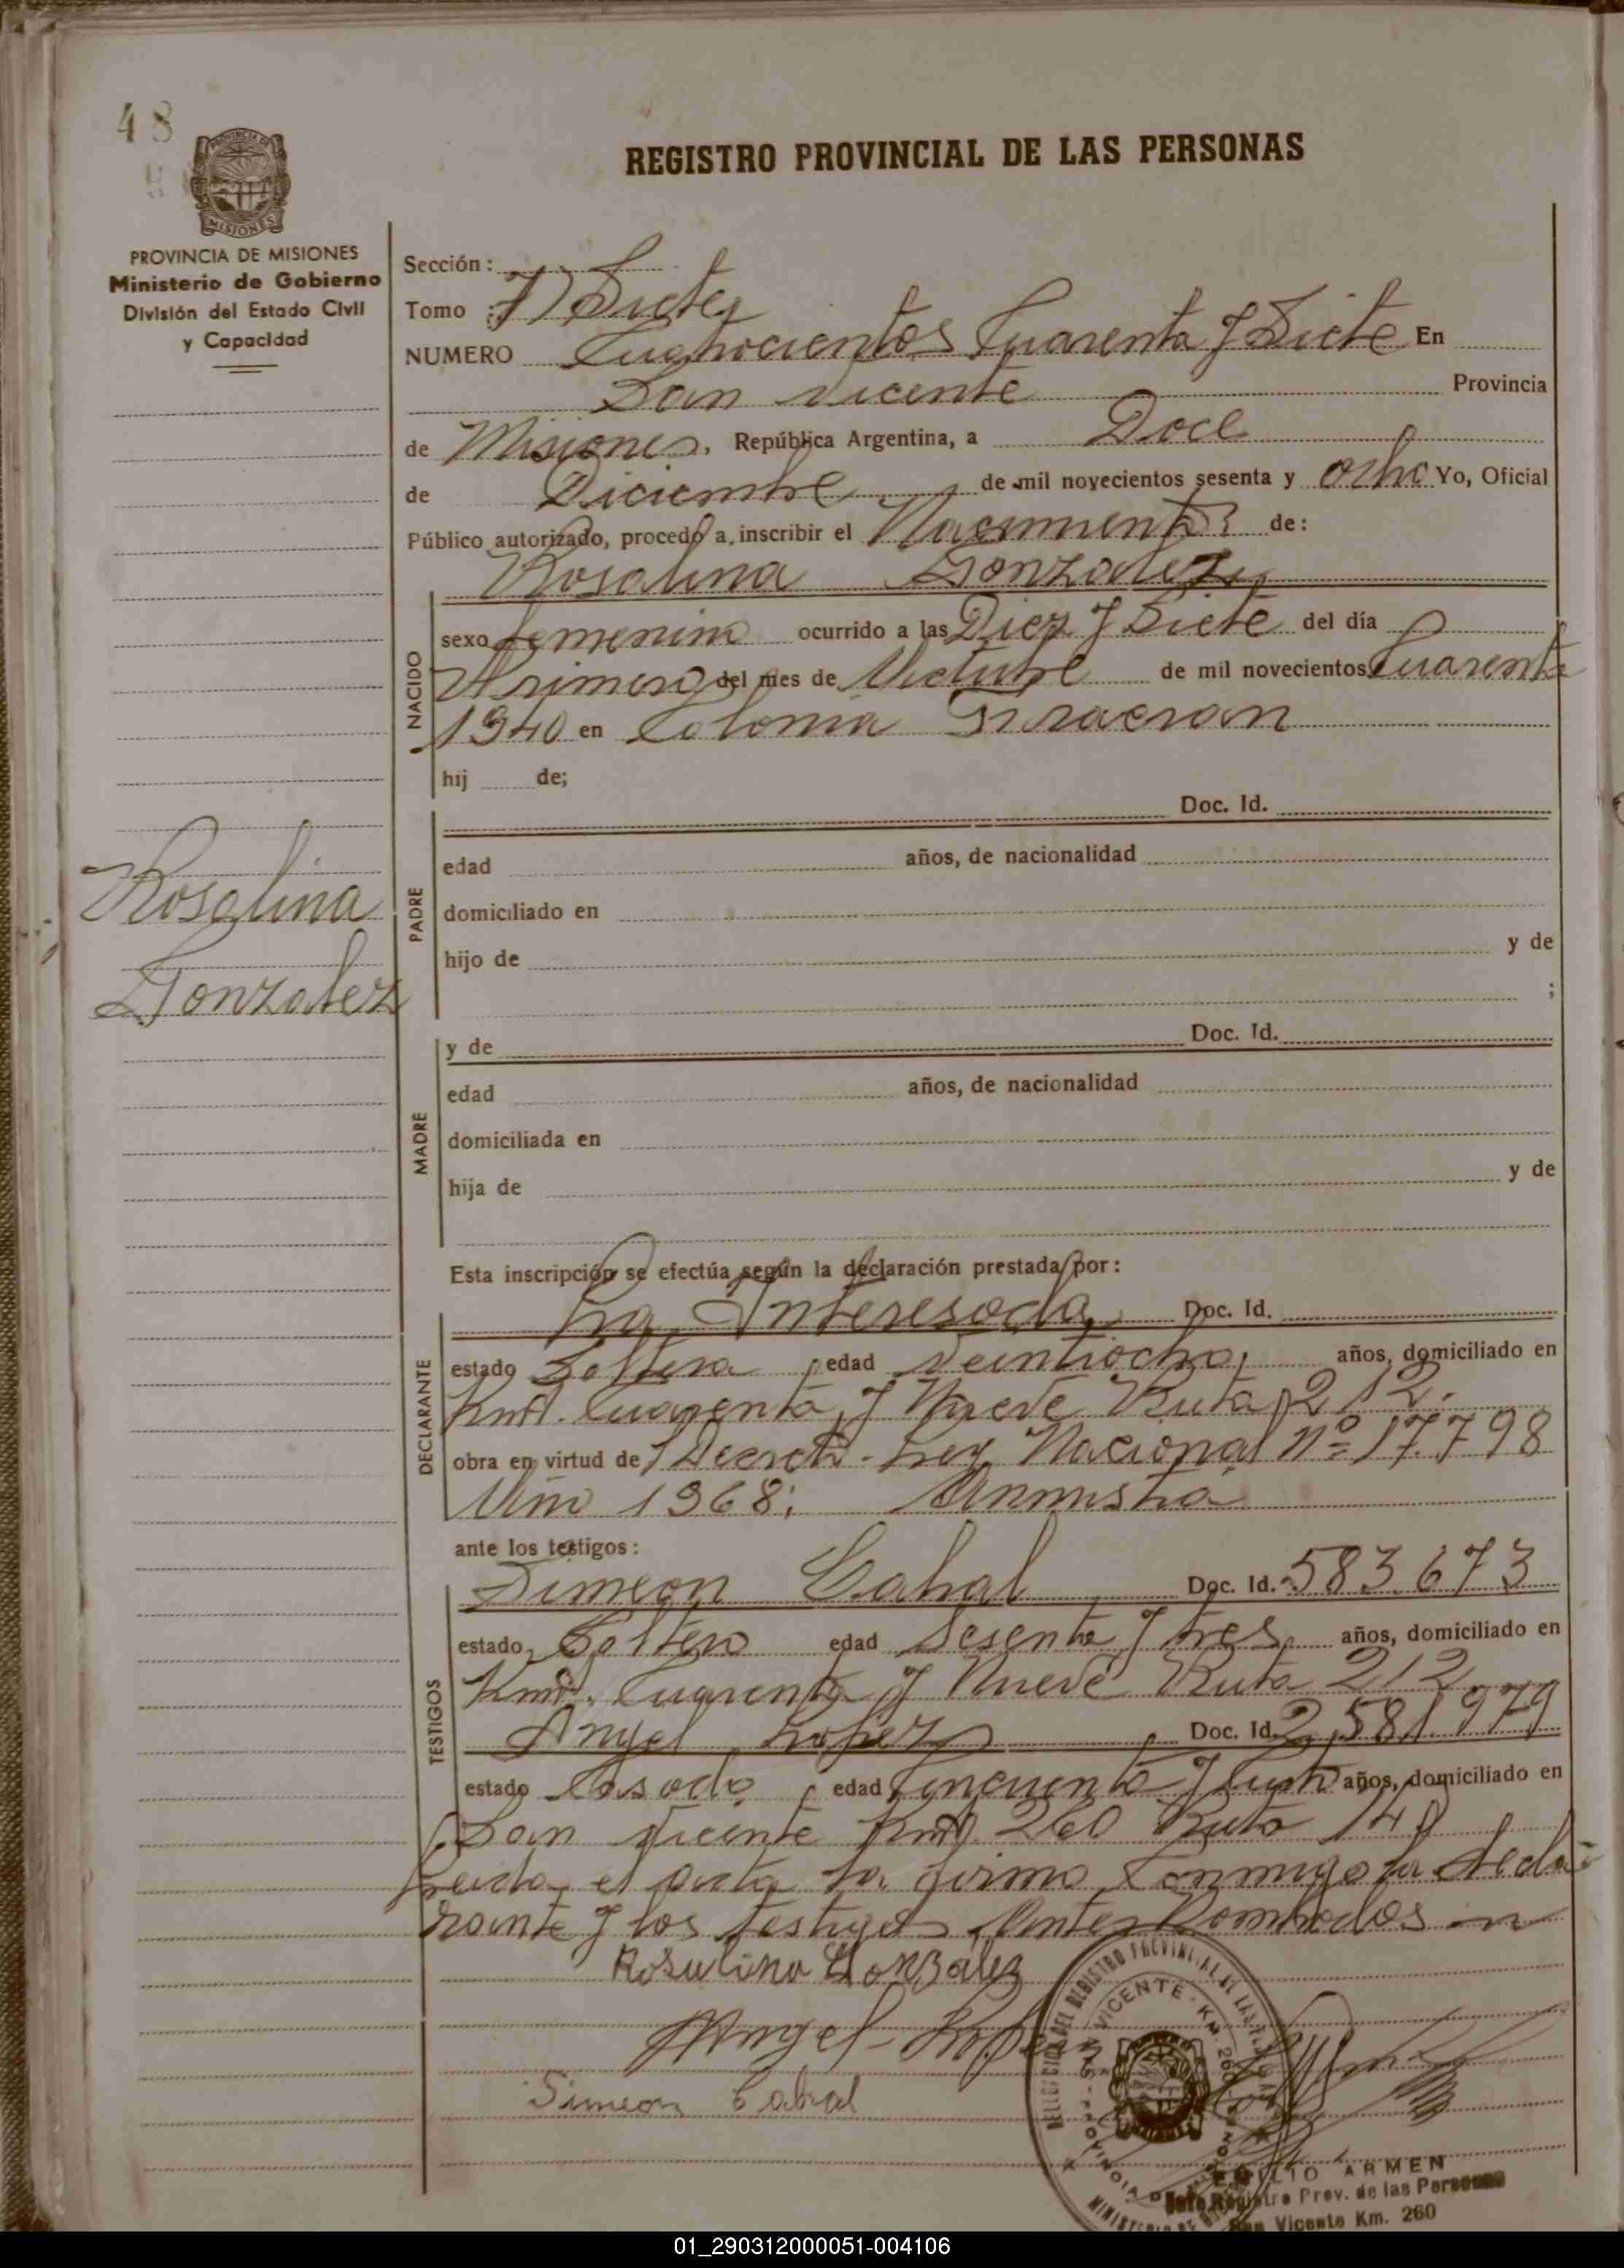 48
REGISTRO PROVINCIAL DE LAS PERSONAS
PROVINCIA DE MISIONES
Ministerio de Gobierno
División del Estado Civil
y Capacidad
Sección:
Tomo: 7) Siete,
NUMERO Cuatrocientos Cuarenta y Siete En
San Vicente Provincia
de Misiones, República Argentina, a Doce
de Diciembre de mil novecientos sesenta y ocho Yo, Oficial
Público autorizado, procedo a inscribir el Nacimiento de:
Rosalina Gonzalez
NACIDO
sexo femenino ocurrido a las Diez y Siete del día
Primero del mes de Octubre de mil novecientos Cuarenta
1940 en Colonia
hij de;
PADRE
Doc. Id.
edad años, de nacionalidad
domiciliado en
hijo de y de
;
Rosalina
Gonzalez
MADRE
y de Doc. Id.
edad años, de nacionalidad
domiciliada en
hija de y de
Esta inscripción se efectúa según la declaración prestada por:
DECLARANTE
La Interesada Doc. Id.
estado Soltera edad Veintiocho, años, domiciliado en
Km. Cuarenta y Nueve Ruta 212.
obra en virtud de Decreto-Ley Nacional Nº 17.798
Año 1968; Amnistia
ante los testigos:
TESTIGOS
Simeon Cabral Doc. Id. 583.673
estado Soltero edad Sesenta y tres años, domiciliado en
Km. Cuarenta y Nueve Ruta 212
Angel Lopez Doc. Id. 2.581.979
estado Casado, edad Cincuenta y años, domiciliado en
San Vicente Km. 260 Ruta 14
Leida el acta la firma Conmigo la decla-
rante y los testigos
Rosulina Gonzalez
Angel Lopez
Simeon Cabral
DEL REGISTRO PROVINCIAL DE LAS
VICENTE - KM. 260
EMILIO ARMEN
Jefe Registro Prov. de las Personas
San Vicente Km. 260
01_290312000051-004106